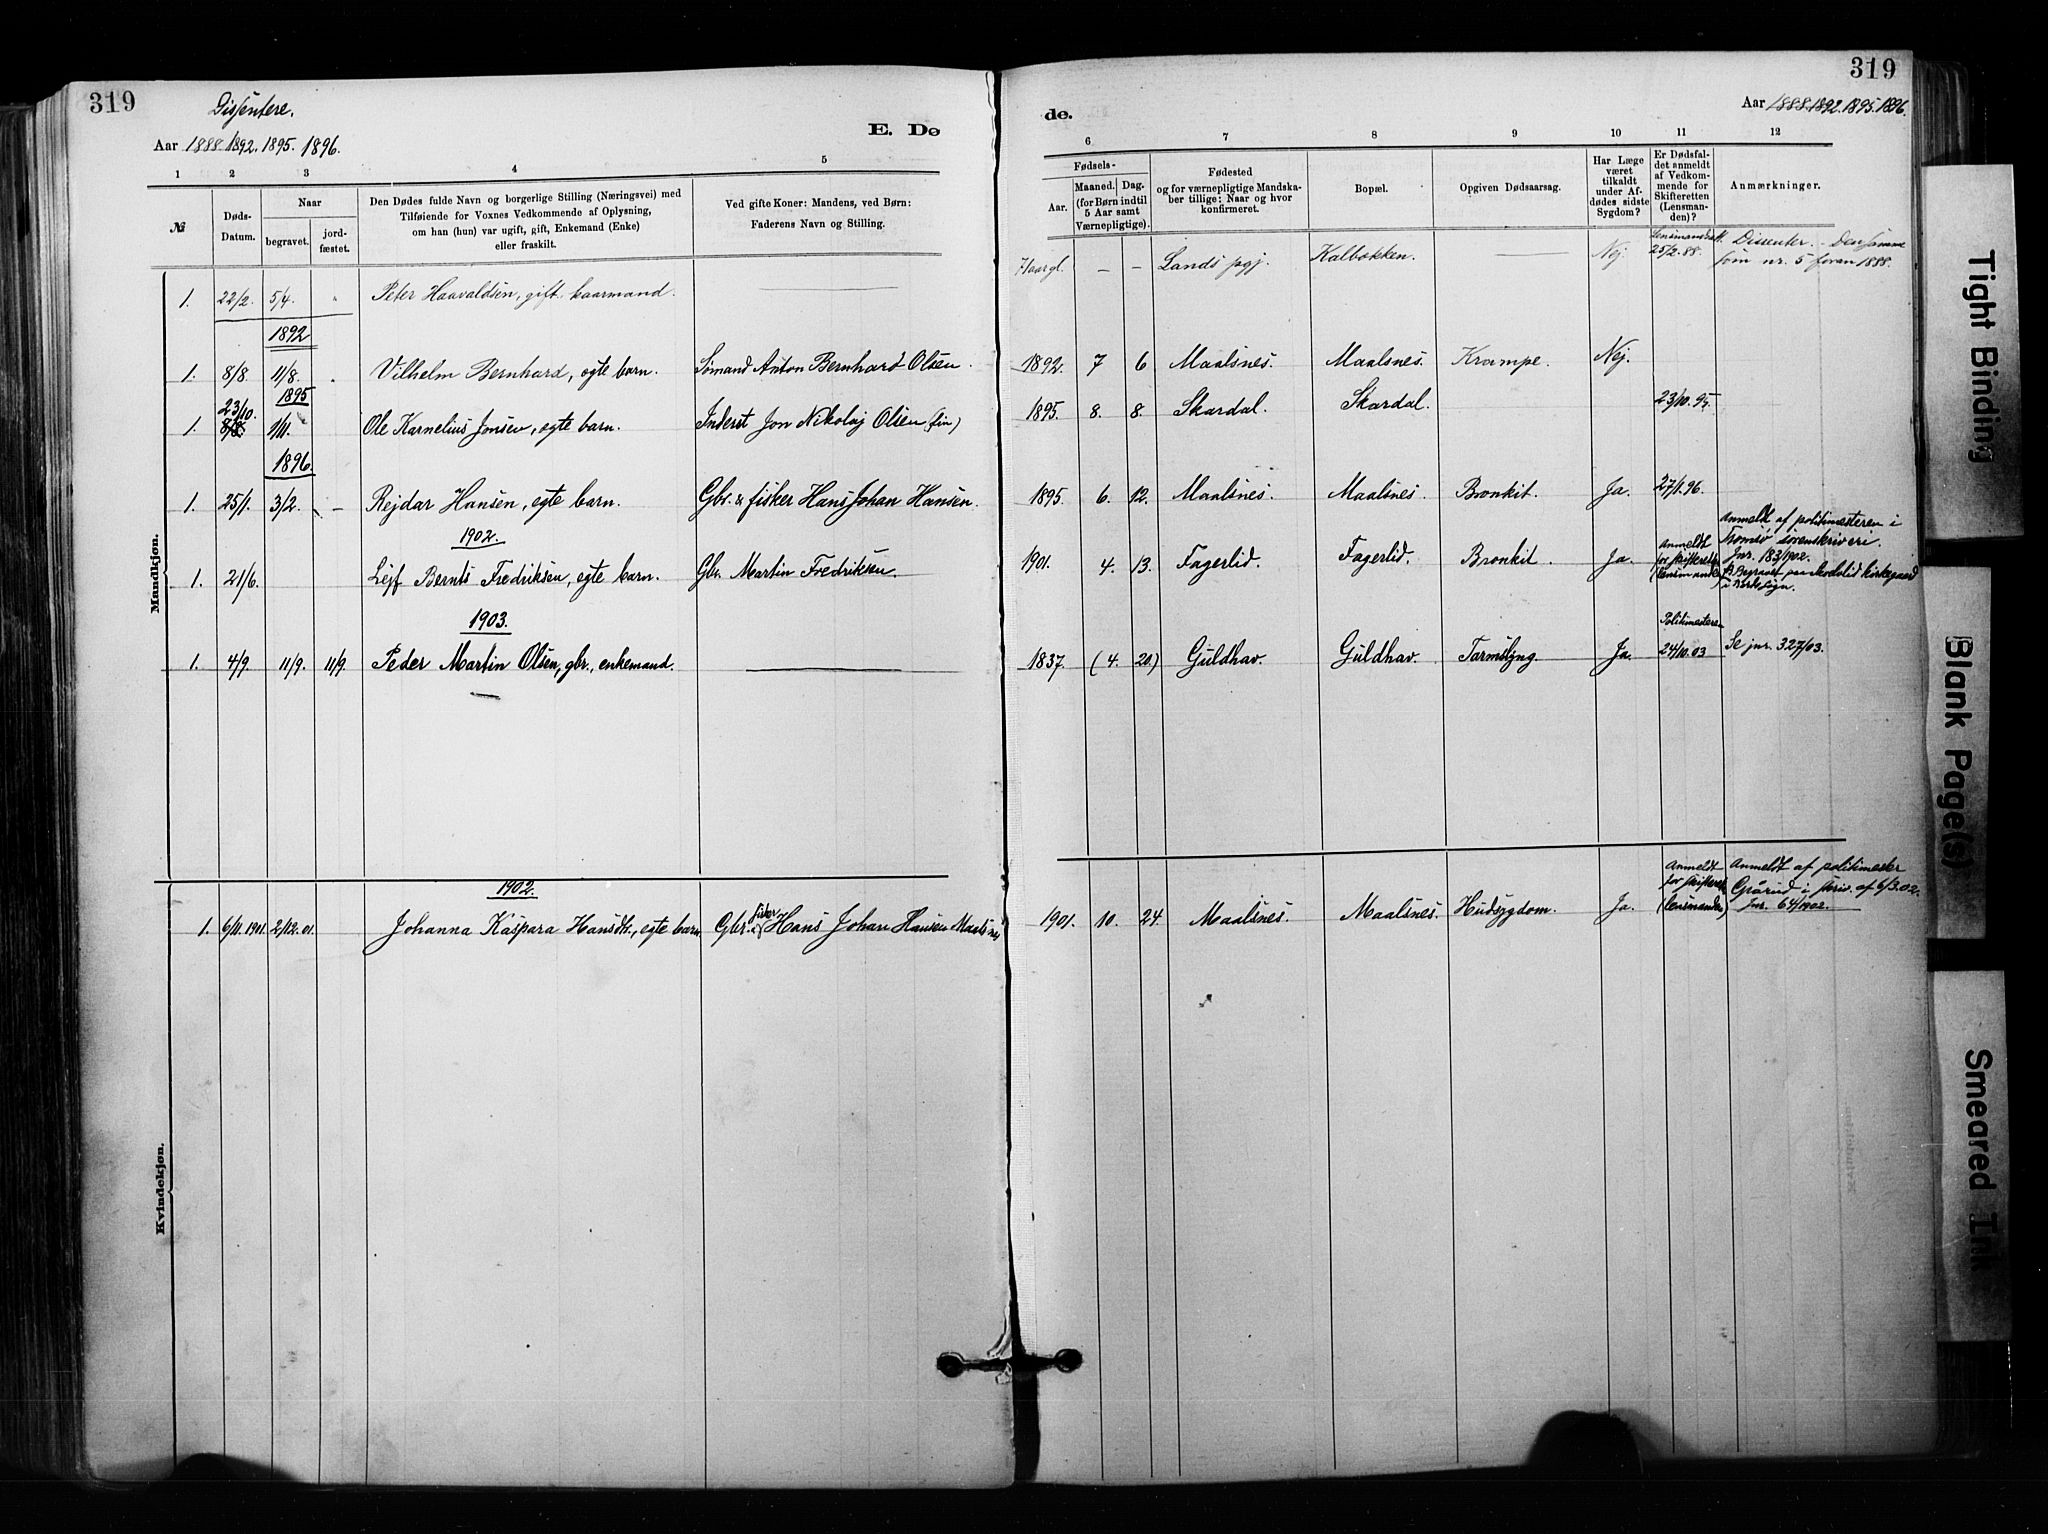 319
Dissentere.
Aar 1888. 1892. 1895. 1896.
E. Dø
1 2 3 4 5
№
Døds-
Datum.
Naar
begravet.
jord-
fæstet.
Den Dødes fulde Navn og borgerlige Stilling (Næringsvei) med
Tilføiende for Voxnes Vedkommende af Oplysning,
om han (hun) var ugift, gift, Enkemand (Enke)
eller fraskilt.
Ved gifte Koner: Mandens, ved Børn:
Faderens Navn og Stilling.
Mandkjøn.
1. 22/2. 5/4. " Peter Haavaldsen, gift kaarmand.
1892
1. 8/8. 11/8. " Vilhelm Bernhard, egte barn. Sømand Anton Bernhard Olsen.
1895
23/10.
1. 8/8. 1/11. Ole Karnelius Jonsen, egte barn. Inderst Jon Nikolaj Olsen (fin)
1896.
1. 25/1. 3/2. - Rejdar Hansen, egte barn. Gbr. & fisker Hans Johan Hansen.
1902.
1. 21/6. Lejf Bernts Fredriksen, egte barn. Gbr. Martin Fredriksen.
1903.
1. 4/9. 11/9. 11/9. Peder Martin Olsen, gbr., enkemand.
Kvindekjøn.
1902.
1. 6/11. 1901. 2/12. 01. Johanna Kaspara Hansdtr., egte barn Gbr. & fisker Hans Johan Hansen Maalsnes
319
Aar 1888. 1892. 1895. 1896.
de.
6 7 8 9 10 11 12
Fødsels-
Aar.
Maaned. Dag.
(for Børn indtil
5 Aar samt
Værnepligtige).
Fødested
og for værnepligtige Mandska-
ber tillige: Naar og hvor
konfirmeret.
Bopæl.
Opgiven Dødsaarsag.
Har Læge
været
tilkaldt
under Af-
dødes sidste
Sygdom?
Er Dødsfal-
det anmeldt
af Vedkom-
mende for
Skifteretten
(Lensman-
den)?
Anmærkninger.
- - Lands pgj. Kalbakken. Nej. 25/2. 88. Dissenter. - Den samme
som nr. 5 foran 1888.
1892. 7 6 Maalsnes. Maalsnes. Krampe. Nej.
1895. 8. 8. Skardal. Skardal. 23/10. 95.
1895. 6. 12. Maalsnes. Maalsnes. Bronkit. Ja. 27/1. 96.
1901. 4. 13. Fagerlid. Fagerlid. Bronkit. Ja. Anmeldt
for skifteretten
(lensmanden)
Anmeldt af politimesteren i
Tromsø sorenskriveri.
Jnr. 183/1902.
Politimesteren
1837. (4. 20.) Guldhav. Guldhav. Tarmslyng. Ja. 24/10. 03 Se jnr. 327/03.
1901. 10. 24. Maalsnes. Maalsnes. Hudsygdom. Ja. Anmeldt
for skifteret
(lensmanden)
Anmeldt af politimester
i skriv. af 6/3.02.
Jnr. 64/1902.
Tight Binding
Blank Page(s)
Smeared Ink